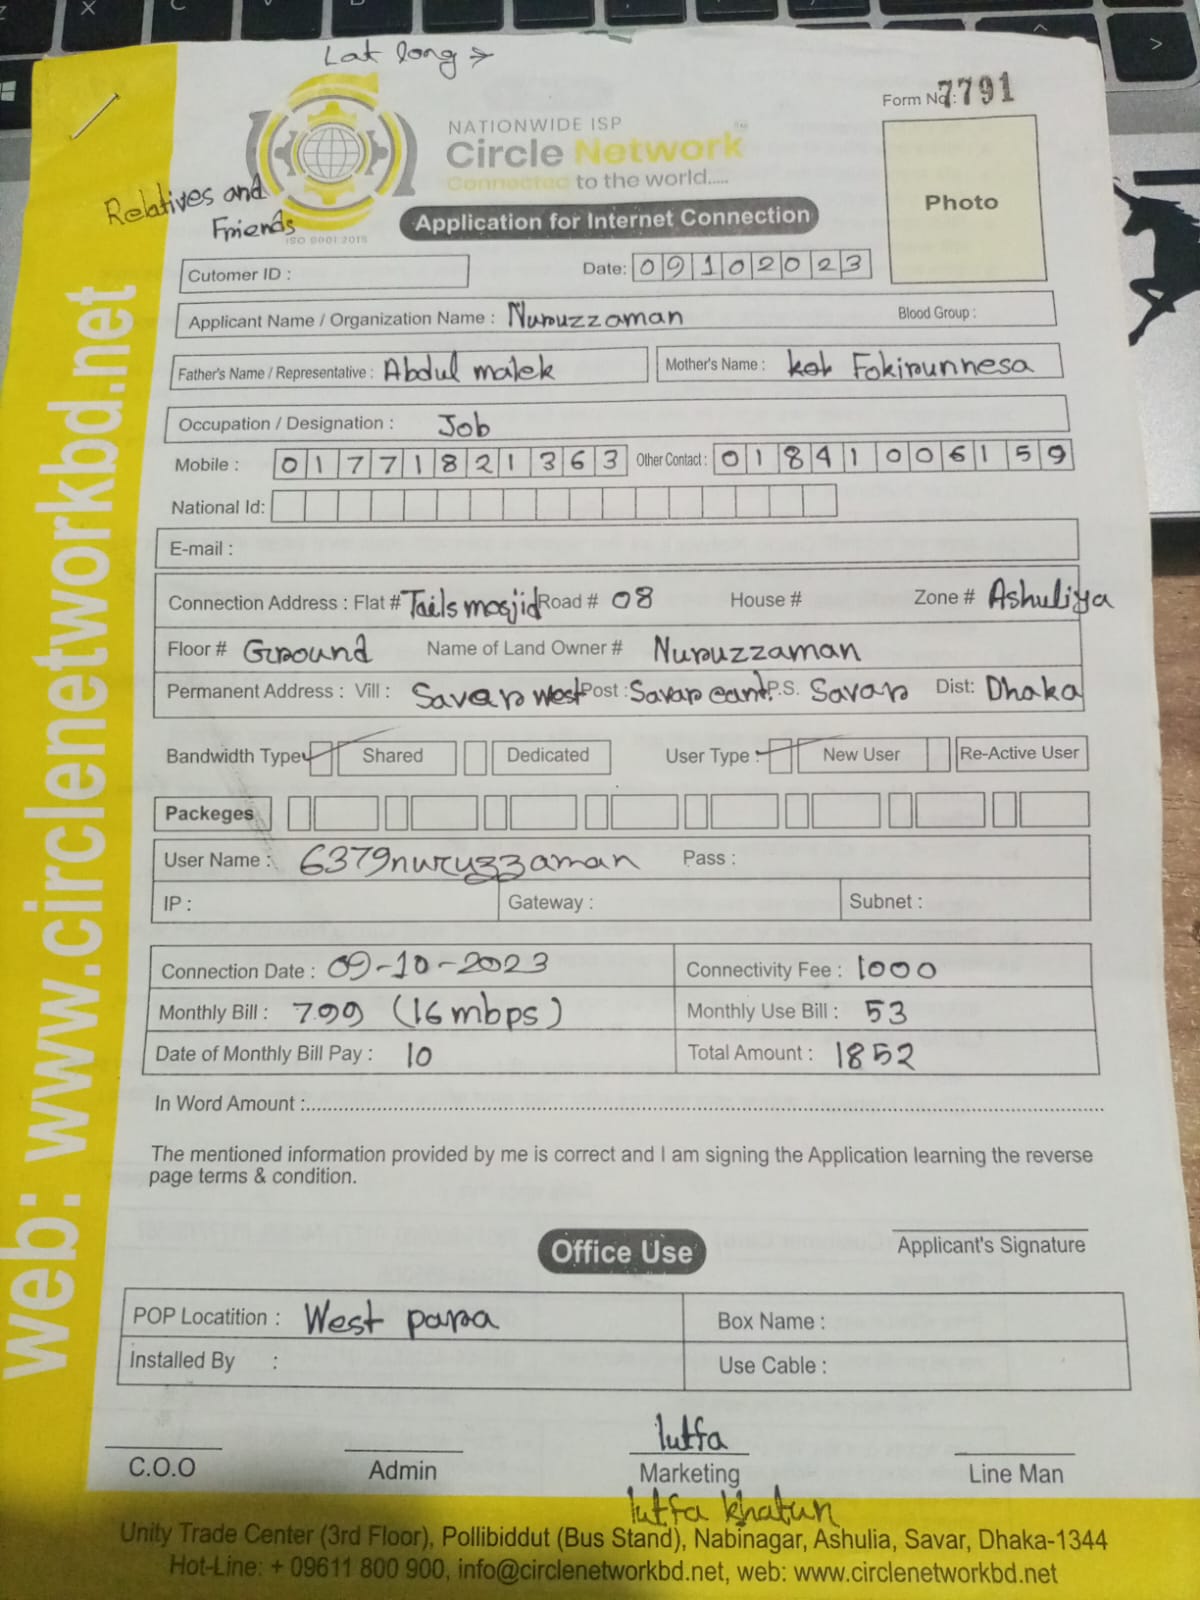 Lat long →
Form No: 7791
NATIONWIDE ISP
Circle Network™
Connected to the world.....
Relatives and
Friends
ISO 9001:2015
Application for Internet Connection
Photo
Cutomer ID :
Date: 09102023
Applicant Name / Organization Name : Nuruzzaman Blood Group :
Father's Name / Representative : Abdul malek Mother's Name : Fokirunnesa
Occupation / Designation : Job
Mobile : 01771821363 Other Contact : 01841006159
National Id:
E-mail :
Connection Address : Flat # Tails mosjid Road # 08 House # Zone # Ashuliya
Floor # Ground Name of Land Owner # Nuruzzaman
Permanent Address : Vill : Savar west Post : Savar cant. P.S. Savar Dist: Dhaka
Bandwidth Type Shared Dedicated User Type : New User Re-Active User
Packeges
User Name : 6379nuruzzaman Pass :
IP : Gateway : Subnet :
Connection Date : 09-10-2023 Connectivity Fee : 1000
Monthly Bill : 799 (16 mbps) Monthly Use Bill : 53
Date of Monthly Bill Pay : 10 Total Amount : 1852
In Word Amount :
The mentioned information provided by me is correct and I am signing the Application learning the reverse
page terms & condition.
Applicant's Signature
Office Use
POP Locatition : West para Box Name :
Installed By : Use Cable :
lutfa
C.O.O Admin Marketing Line Man
lutfa khatun
Unity Trade Center (3rd Floor), Pollibiddut (Bus Stand), Nabinagar, Ashulia, Savar, Dhaka-1344
Hot-Line: + 09611 800 900, info@circlenetworkbd.net, web: www.circlenetworkbd.net
web: www.circlenetworkbd.net